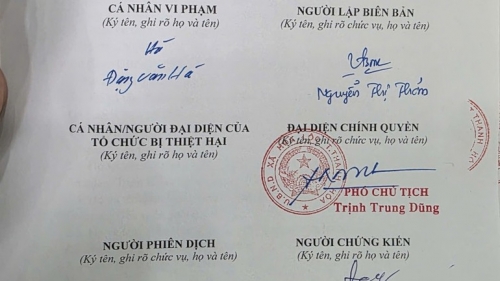 CÁ NHÂN VI PHẠM
(Ký tên, ghi rõ họ và tên)
Hà
Đặng Văn Hà
NGƯỜI LẬP BIÊN BẢN
(Ký tên, ghi rõ chức vụ, họ và tên)
Nguyễn Thị
CÁ NHÂN/NGƯỜI ĐẠI DIỆN CỦA
TỔ CHỨC BỊ THIỆT HẠI
(Ký tên, ghi rõ họ và tên)
ĐẠI DIỆN CHÍNH QUYỀN
(Ký tên, ghi rõ chức vụ, họ và tên)
U.B.N.D XÃ
THANH HÓA
PHÓ CHỦ TỊCH
Trịnh Trung Dũng
NGƯỜI PHIÊN DỊCH
(Ký tên, ghi rõ chức vụ, họ và tên)
NGƯỜI CHỨNG KIẾN
(Ký tên, ghi rõ chức vụ, họ và tên)